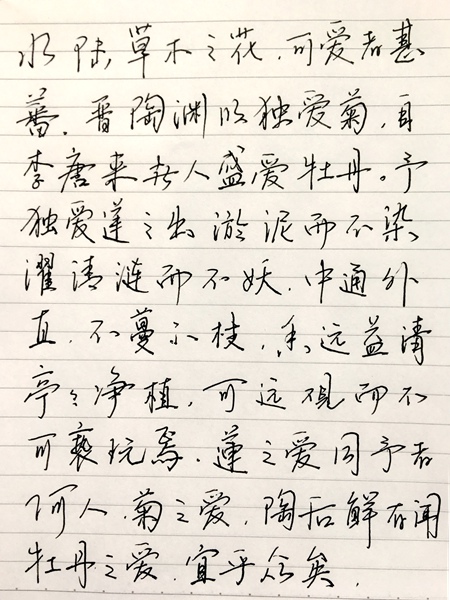 水陆草木之花,可爱者甚
蕃。晋陶渊明独爱菊,自
李唐来世人盛爱牡丹。予
独爱蓮之出淤泥而不染
濯清涟而不妖,中通外
直,不蔓不枝,香远益清
亭々净植,可远观而不
可亵玩焉.蓮之爱同予者
何人.菊之爱,陶后鲜有闻
牡丹之爱.宜乎众矣.